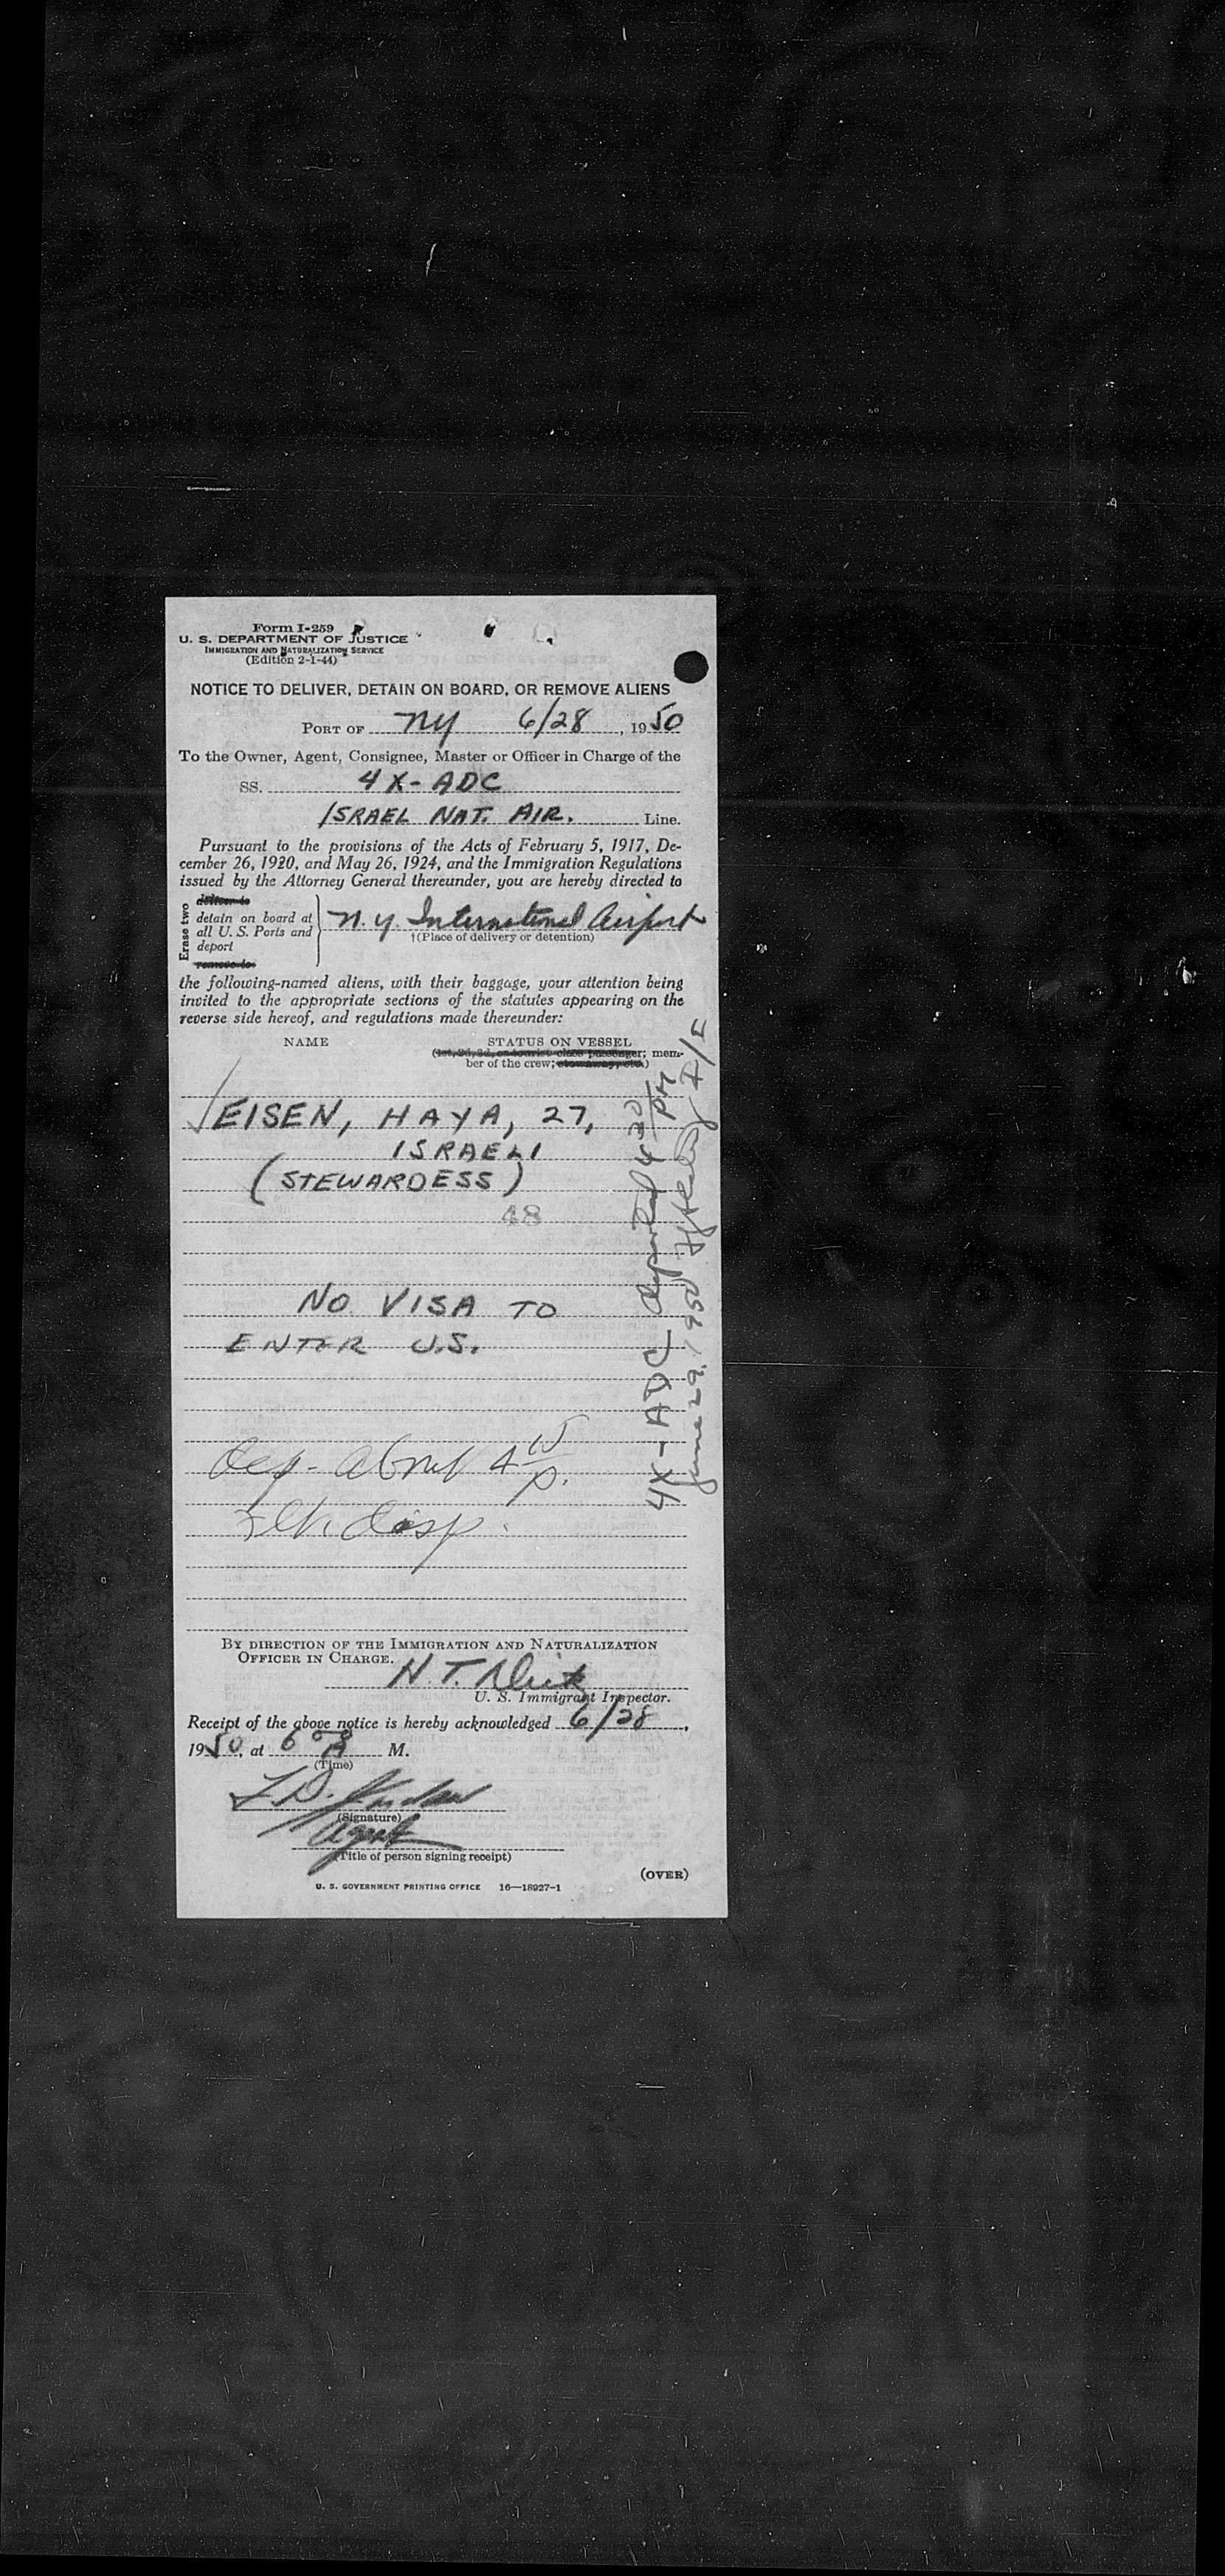 Form I-259
U. S. DEPARTMENT OF JUSTICE
IMMIGRATION AND NATURALIZATION SERVICE
(Edition 2-1-44)
NOTICE TO DELIVER, DETAIN ON BOARD, OR REMOVE ALIENS
PORT OF NY 6/28, 1950
To the Owner, Agent, Consignee, Master or Officer in Charge of the
SS. 4X-ADC
ISRAEL NAT. AIR. Line.
Pursuant to the provisions of the Acts of February 5, 1917, De-
cember 26, 1920, and May 26, 1924, and the Immigration Regulations
issued by the Attorney General thereunder, you are hereby directed to
Erase two
deliver to
detain on board at
all U. S. Ports and
deport
remove to
N.Y. International Airport
†(Place of delivery or detention)
the following-named aliens, with their baggage, your attention being
invited to the appropriate sections of the statutes appearing on the
reverse side hereof, and regulations made thereunder:
NAME STATUS ON VESSEL
(1st, 2d, 3d, or tourist class passenger; mem-
ber of the crew; stowaway, etc.)
EISEN, HAYA, 27,
ISRAELI
(STEWARDESS)
48
NO VISA TO
ENTER U.S.
Dep. about 4 15 p.
Flt. disp.
4X-ADC departed 4 30 PM
June 29, 1950
BY DIRECTION OF THE IMMIGRATION AND NATURALIZATION
OFFICER IN CHARGE.
H. T.
U. S. Immigrant Inspector.
Receipt of the above notice is hereby acknowledged 6/28,
1950, at 6 00 A M.
(Time)
(Signature)
Agent
(Title of person signing receipt)
(OVER)
U. S. GOVERNMENT PRINTING OFFICE 16—18927-1